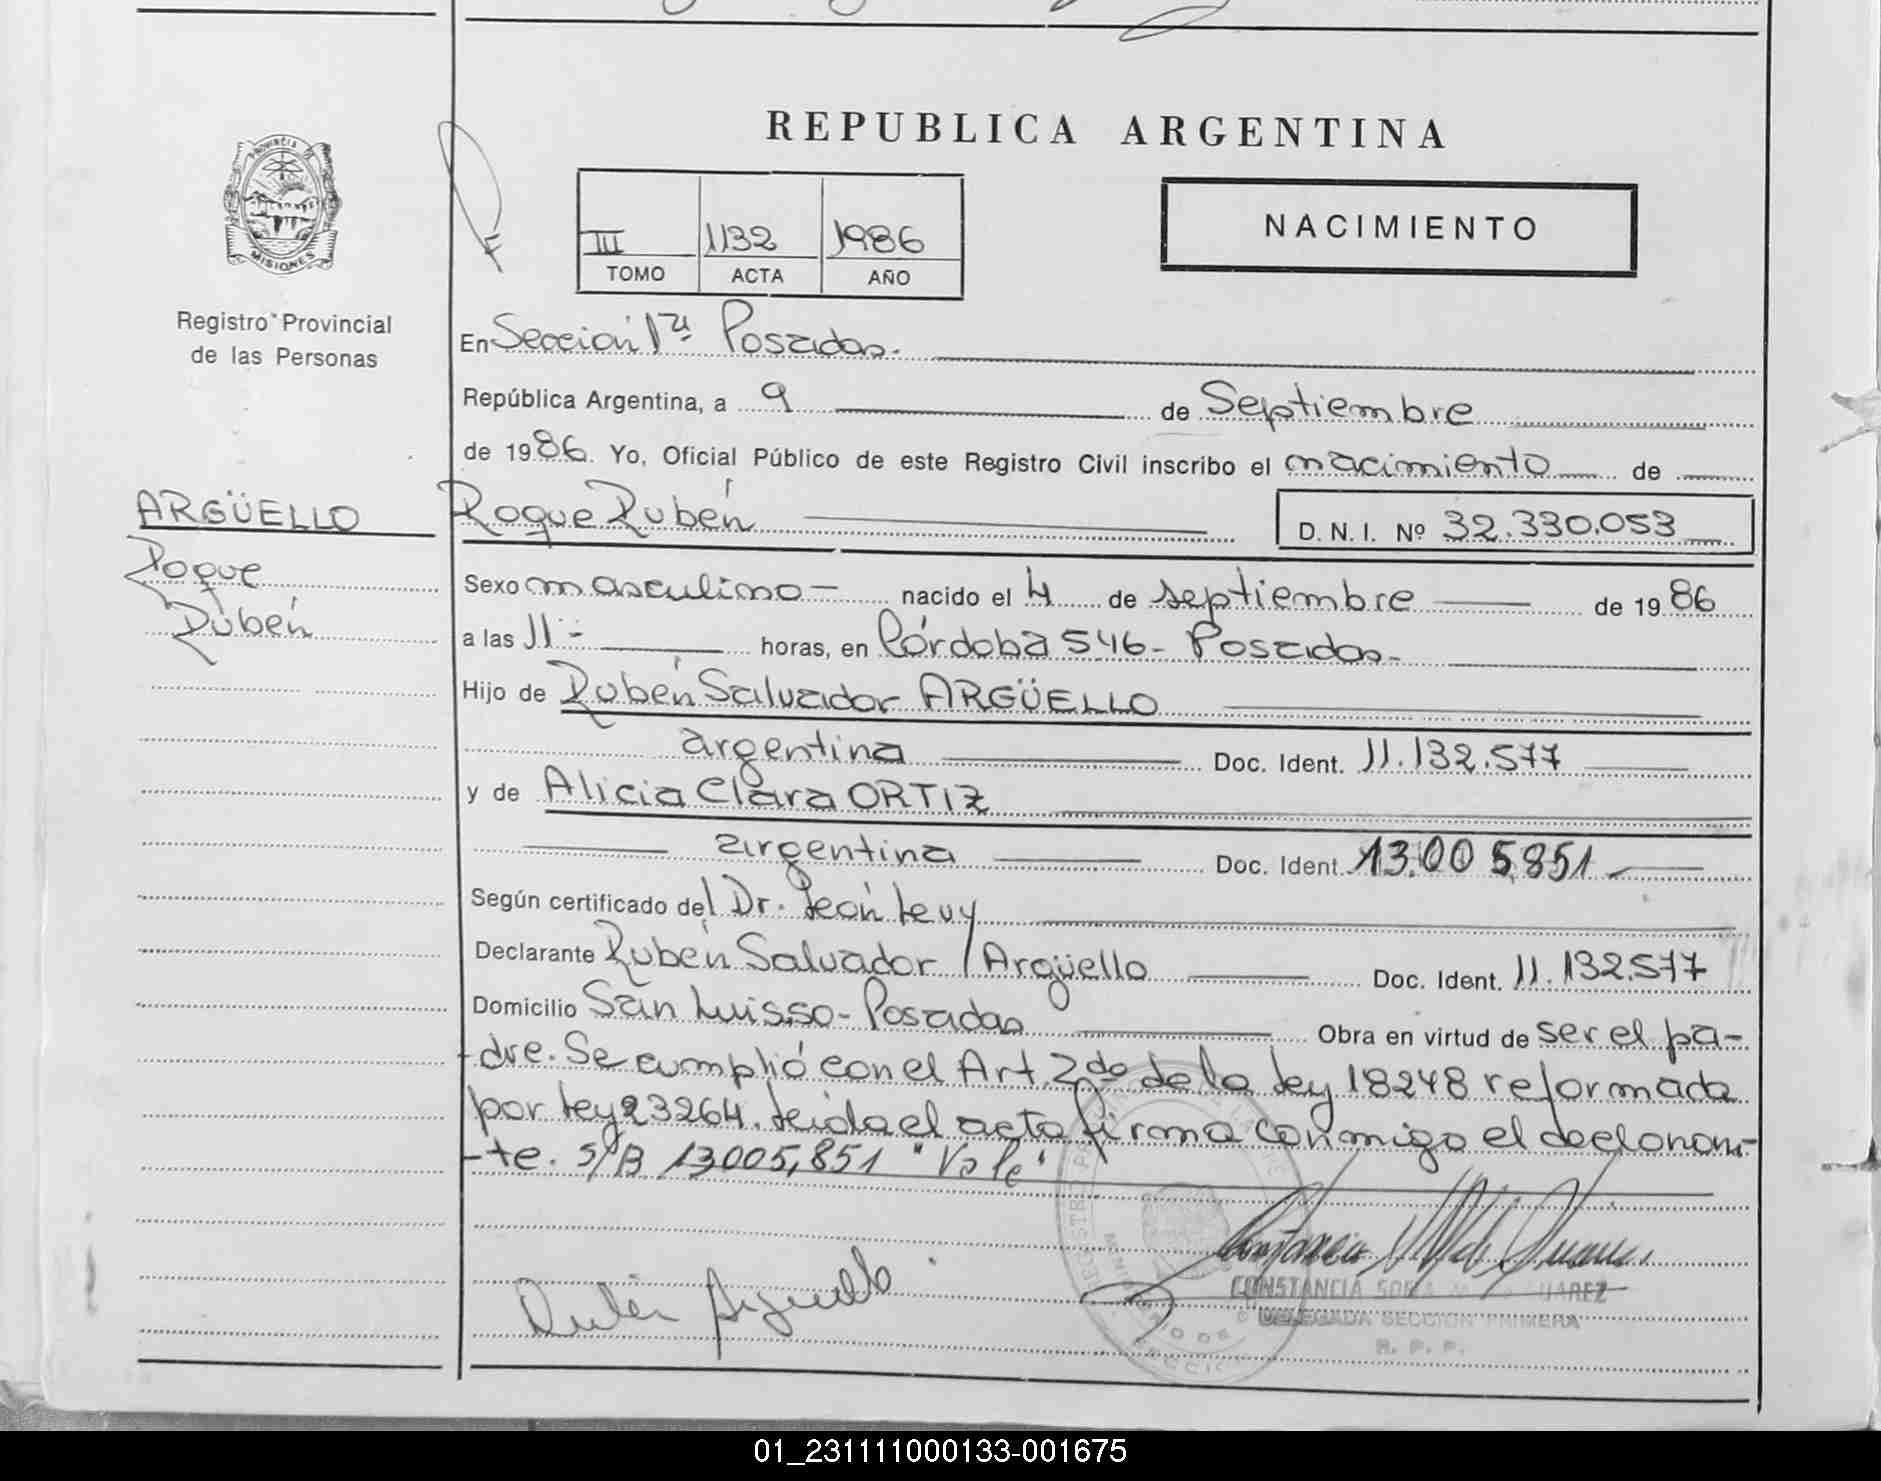 REPUBLICA ARGENTINA
PROVINCIA DE
MISIONES
Registro Provincial
de las Personas
III 1132 1986
TOMO ACTA AÑO
NACIMIENTO
En Sección 1ra Posadas.
República Argentina, a 9 de Septiembre
de 1986. Yo, Oficial Público de este Registro Civil inscribo el nacimiento de
ARGÜELLO
Roque
Rubén
Roque Rubén D. N. I. Nº 32.330.053
Sexo masculino - nacido el 4 de septiembre de 1986
a las 11 - horas, en Córdoba 546 - Posadas -
Hijo de Rubén Salvador ARGÜELLO
argentina Doc. Ident. 11.132.577
y de Alicia Clara ORTIZ
argentina Doc. Ident. 13.005.851
Según certificado del Dr. León Levy
Declarante Rubén Salvador Argüello Doc. Ident. 11.132.577
Domicilio San Luis 50 - Posadas Obra en virtud de ser el pa-
dre. Se cumplió con el Art. 2do de la Ley 18248 reformada
por Ley 23264. Leida el acta firma conmigo el declaran-
-te. S/B 13005,851 "Vale"
Rubén Arguello
CONSTANCIA SOFIA SUAREZ
DELEGADA SECCION PRIMERA
R. P. P.
01_231111000133-001675